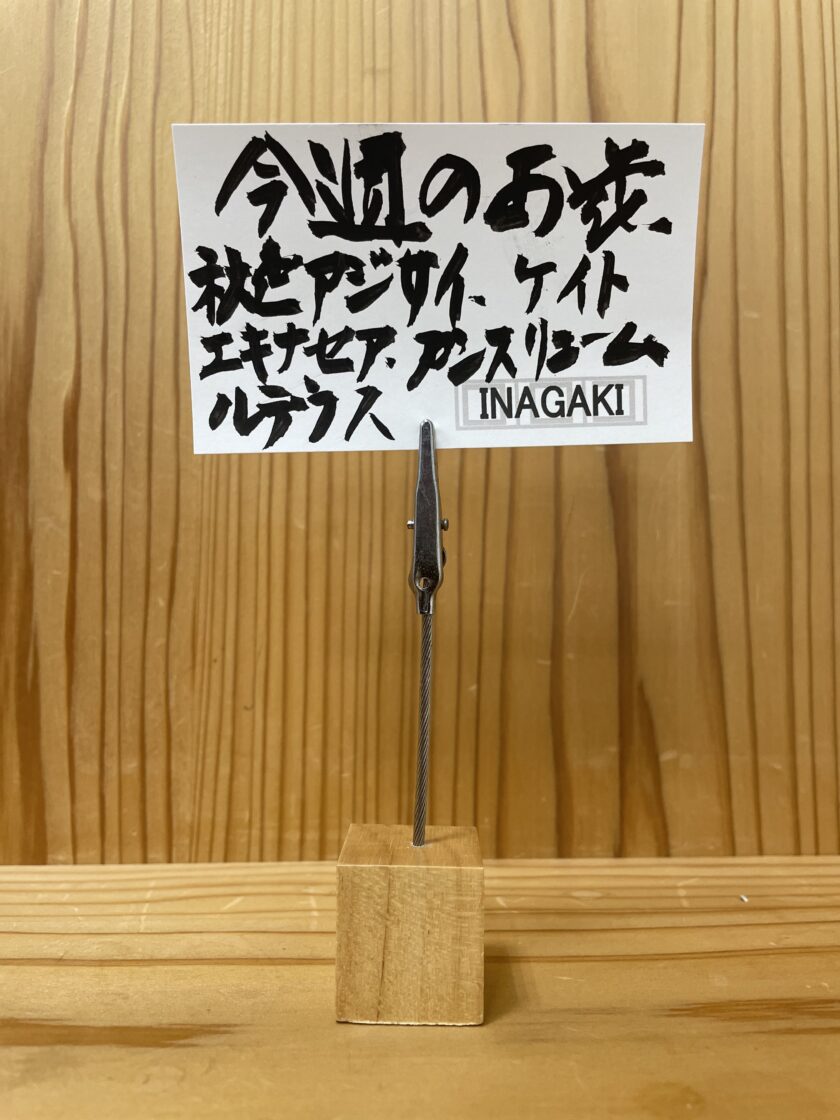 今週のお花、
秋色アジサイ、ケイト
エキナセア、アンスリューム
ルテウス
INAGAKI